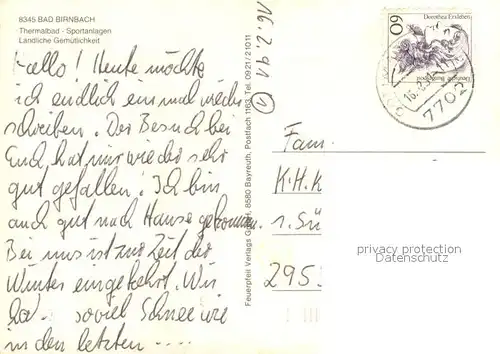 8345 BAD BIRNBACH
Thermalbad · Sportanlagen
Ländliche Gemütlichkeit
Hallo! Heute möchte
ich endlich einmal wieder
schreiben. Der Besuch bei
Euch hat mir wieder sehr
gut gefallen! Ich bin
auch gut nach Hause gekommen.
Bei uns ist zur Zeit der
Winter eingekehrt. Wir
soviel Schnee wie
in den letzten ....
16.2.91
1
Feuerpfeil Verlags GmbH, 8580 Bayreuth, Postfach 1163 Tel. 0921/21011
60
Dorothea Erxleben
Deutsche Bundespost
7702
Fam.
K.H.K
1. Sü
295
privacy protection
Datenschutz